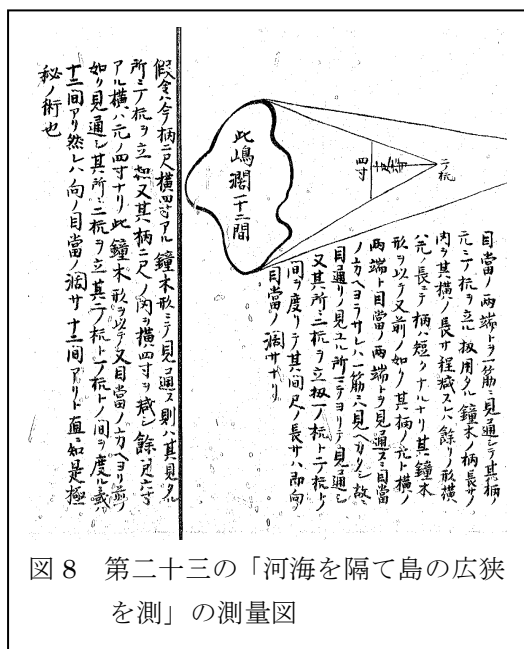 目當ノ両端トヲ一筋ニ見通シテ其柄ノ
元ニテ杭ヲ立ル扨用タル鐘木ノ柄長サノ
内ヲ其横ノ長サ程減スレハ餘リノ形横
ハ元ノ長ニテ柄ハ短クナルナリ其鐘木
形ヲ以テ又前ノ如ク其柄ノ元ト横ノ
両端ト目當ノ両端トヲ見通スニ目當
ノ方ヘヨラサレハ一筋ニ見ヘカタシ故ニ
目通リノ見ユル所ニテヨリテ見通シ
又其所ニ杭ヲ立扨一ノ杭ト二ノ杭トノ
間ヲ度リテ其間尺ノ長サハ即向
目當ノ濶サナリ
二ノ杭
四寸
此嶋濶十二間
假令ハ今柄二尺横四寸アル鐘木形ニテ見通ス則ハ其見タル
所ニテ杭ヲ立扨又其柄二尺ノ内ヲ横四寸ヲ減シ餘一尺六寸
アル横ハ元ノ四寸ナリ此鐘木形ヲ以テ又目當ノ方ヘヨリ前ノ
如ク見通シ其所ニ杭ヲ立其二ノ杭ト一ノ杭トノ間ヲ度ル或ハ
十二間アリ然レハ向ノ目當ノ濶サ十二間アリト直ニ知是極
秘ノ術也
図 8　第二十三の「河海を隔て島の広狭
を測」の測量図